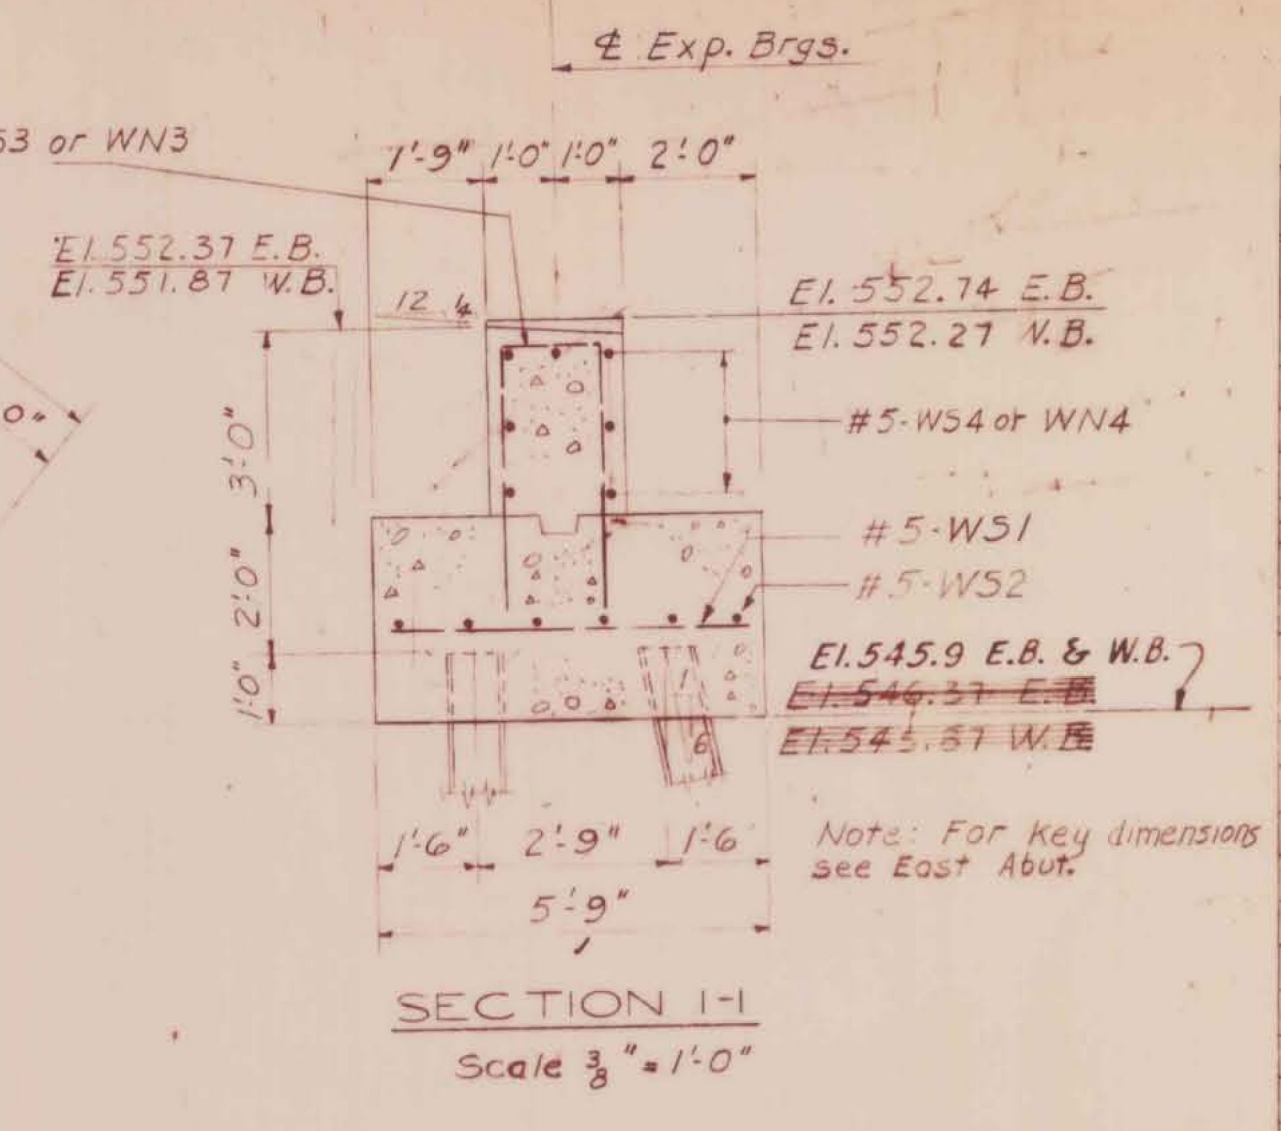 ℄ Exp. Brgs.
S3 or WN3
1'-9" 1'-0" 1'-0" 2'-0"
El. 552.37 E.B.
El. 551.87 W.B.
12 4
El. 552.74 E.B.
El. 552.27 W.B.
0"
3'-0"
#5-WS4 or WN4
2'-0"
#5-WS1
#5-WS2
1'-0"
El. 545.9 E.B. & W.B.
El. 546.37 E.B.
El. 545.87 W.B.
1
6
1'-6" 2'-9" 1'-6
Note: For Key dimensions
see East Abut.
5'-9"
SECTION 1-1
Scale 3/8" = 1'-0"